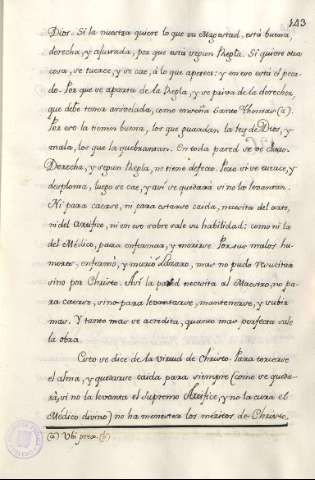 143
Dios. Si la nuestra quiere lo que su Magestad, está buena,
derecha, y ajustada, por que está segun Regla. Si quiere otra
cosa, se tuerce, y se cae, á lo que apetece: y en eso está el peca-
do. Por que se aparta de la Regla, y se priva de la derechez,
que debe tener arreglada, como enseña Santo Thomás (a).
Por eso la tienen buena, los que guardan la ley de Dios, y
mala, los que la quebrantan. En toda pared se ve claro.
Derecha, y segun Regla, no tiene defecto. Pero si se tuerce, y
desploma, luego se cae, y así se quedará si no la levantan.
Ni para caerse, ni para estarse caida, necesita del arte,
ni del Artifice, ni en eso sobre sale su habilidad: como ni la
del Médico, para enfermar, y morirse. Por sus malos hu-
mores, enfermó, y murió Lázaro, mas no pudo resucitar
sino por Christo. Así la pared necesita al Maestro, no pa-
ra caerse, sino para levantarse, mantenerse, y subir
mas. Y tanto mas se acredita, quanto mas perfecta sale
la obra.
Esto se dice de la virtud de Christo. Para torcerse
el alma, y quedarse caida para siempre (como se queda-
rá, si no la levanta el supremo Artifice, y no la cura el
Médico divino) no ha menester los méritos de Christo,
(a) Ubi prox. (b)